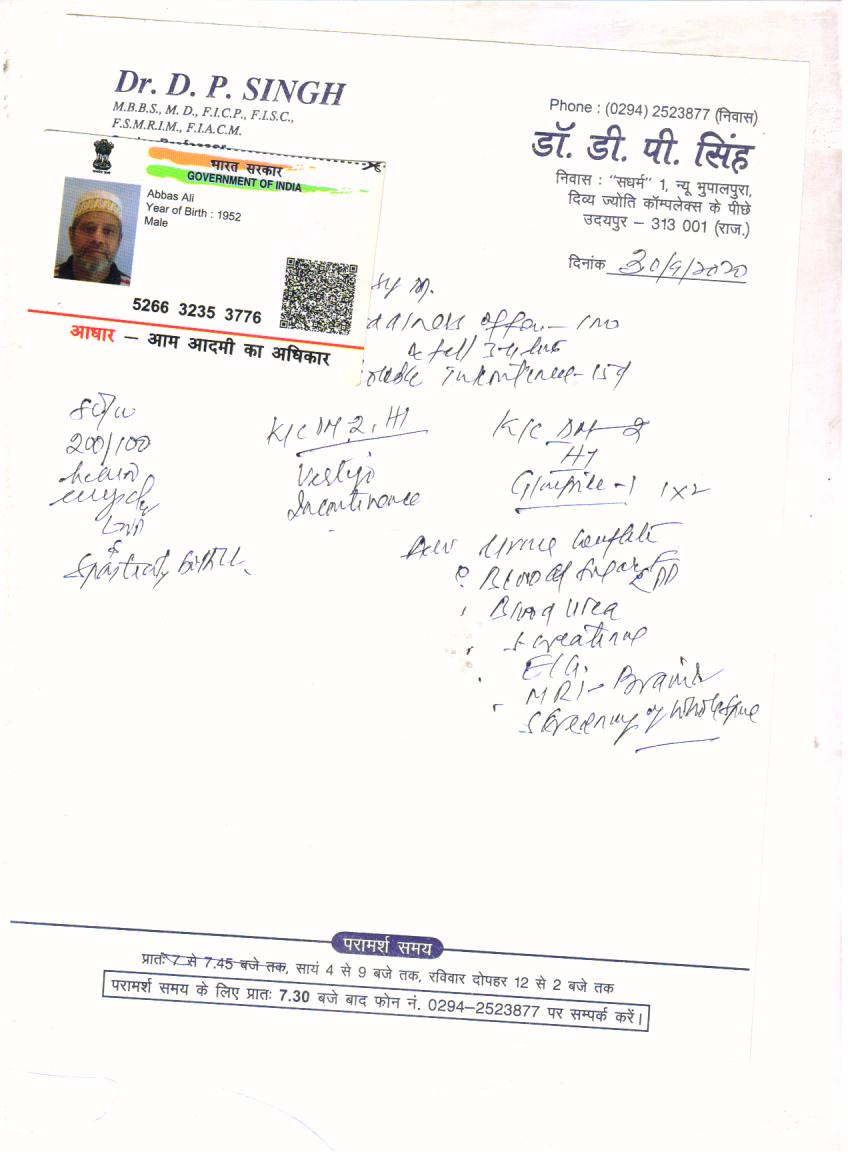 Dr. D. P. SINGH
M.B.B.S., M. D., F.I.C.P., F.I.S.C.,
F.S.M.R.I.M., F.I.A.C.M.
Phone : (0294) 2523877 (निवास)
डॉ. डी. पी. सिंह
निवास : "सधर्म" 1, न्यू भुपालपुरा,
दिव्य ज्योति कॉम्पलेक्स के पीछे
उदयपुर – 313 001 (राज.)
दिनांक 30/9/2020
भारत सरकार
GOVERNMENT OF INDIA
Abbas Ali
Year of Birth : 1952
Male
5266 3235 3776
आधार – आम आदमी का अधिकार
200/100
K/C DM 2, HT
Vertigo
Incontinence
K/C DM 2
HT
1 x 2
Adv Urine Complete
Blood Sugar
Blood Urea
S creatinine
MRI - Brain
Screening of Whole Spine
परामर्श समय
प्रातः 7 से 7.45 बजे तक, सायं 4 से 9 बजे तक, रविवार दोपहर 12 से 2 बजे तक
परामर्श समय के लिए प्रातः 7.30 बजे बाद फोन नं. 0294–2523877 पर सम्पर्क करें।